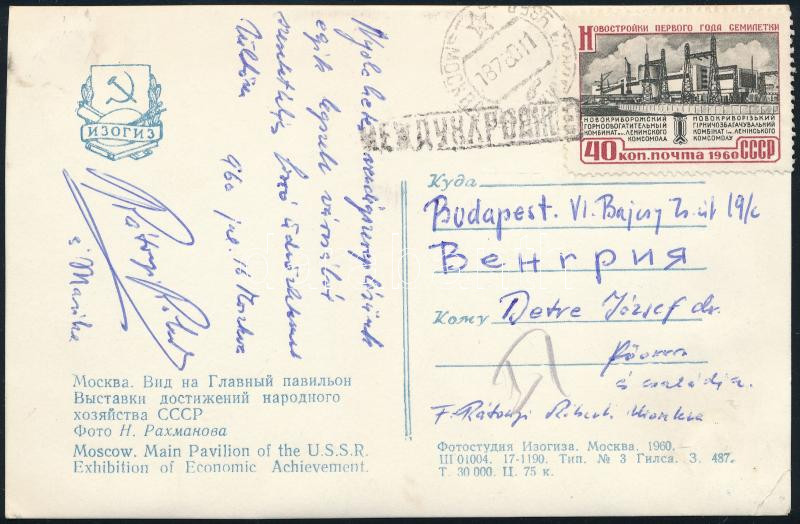 ИЗОГИЗ
egyik
városából
960 júl. 16 Moszkva
Rátonyi Róbert
s Marika
МОСКВА
18760 11
МЕЖДУНАРОДНОЕ
НОВОСТРОЙКИ ПЕРВОГО ГОДА СЕМИЛЕТКИ
НОВОКРИВОРОЖСКИЙ
ГОРНООБОГАТИТЕЛЬНЫЙ
КОМБИНАТ им. ЛЕНИНСКОГО
КОМСОМОЛА
НОВОКРИВОРІЗЬКИЙ
ГІРНИЧОЗБАГАЧУВАЛЬНИЙ
КОМБІНАТ ім. ЛЕНІНСЬКОГО
КОМСОМОЛУ
40 КОП. ПОЧТА 1960 СССР
Куда
Budapest. VI. Bajcsy Zs. út 19/c
Венгрия
Кому Detre József dr.
s családja.
F. Rátonyi Róbert Moszkva
Москва. Вид на Главный павильон
Выставки достижений народного
хозяйства СССР
Фото Н. Рахманова
Moscow. Main Pavilion of the U.S.S.R.
Exhibition of Economic Achievement.
Фотостудия Изогиза. Москва. 1960.
Ш 01004. 17-1190. Тип. № 3 Гилса. З. 487.
Т. 30 000. Ц. 75 к.